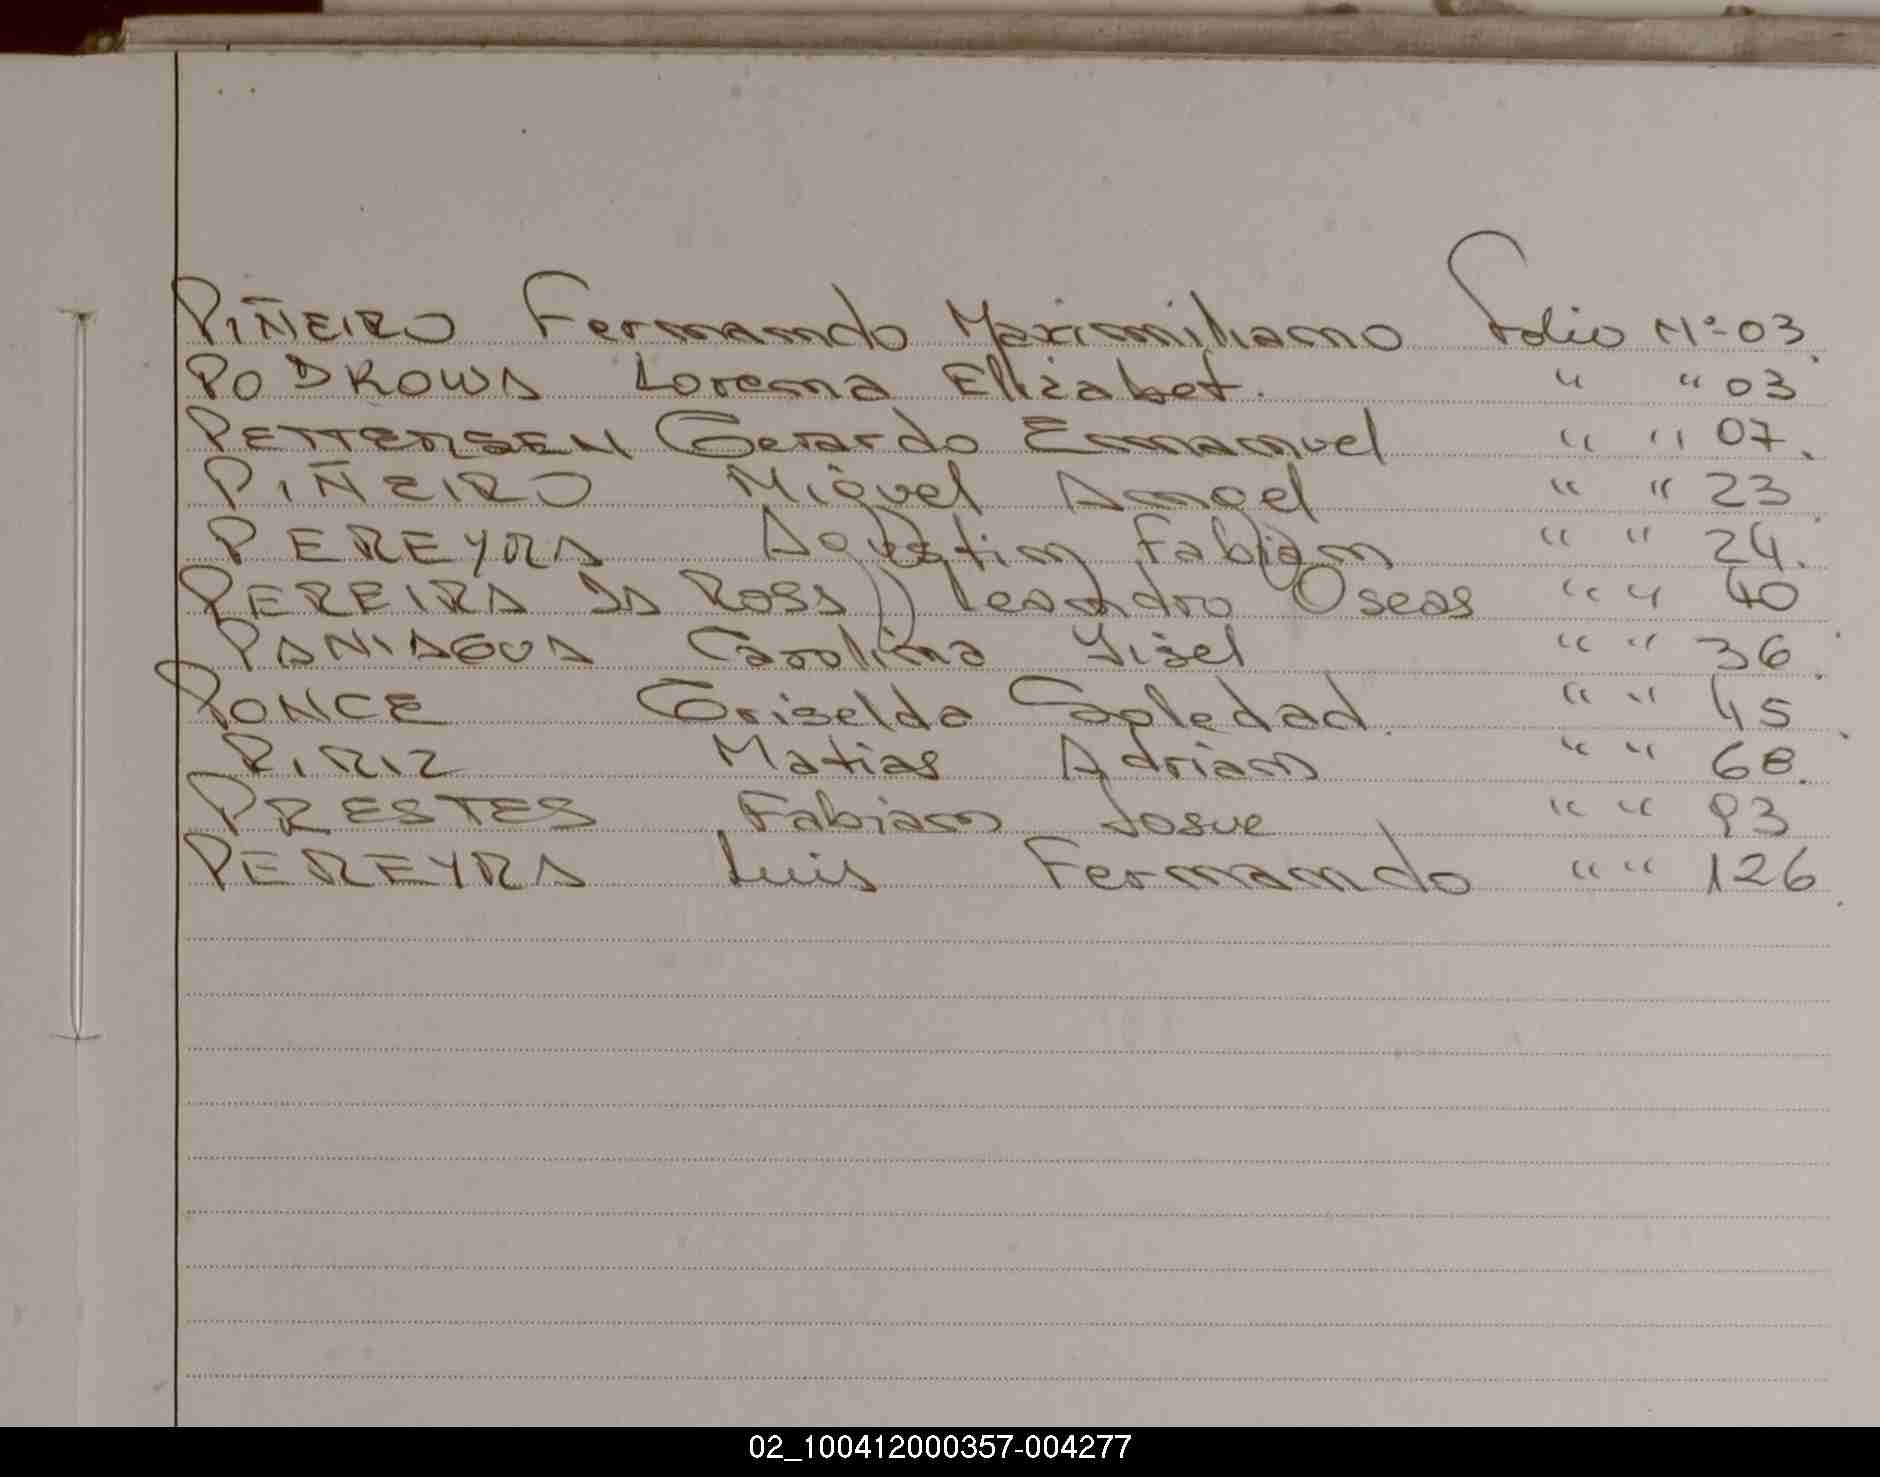 PIÑEIRO Fernando Maximiliano Folio Nº 03.
PODROWA Lorena Elizabet. " " 03
PETTERSEN Gerardo Emmanuel " " 07.
PIÑEIRO Miguel Angel " " 23
PEREYRA Agustin Fabian " " 24.
PEREIRA DA ROSA Leandro Oseas " " 40
PANIAGUA Carolina Yisel " " 36.
PONCE Griselda Soledad. " " 45.
PIRIZ Matias Adrian " " 68.
PRESTES Fabian Josue " " 93
PEREYRA Luis Fernando " " 126.
02_100412000357-004277